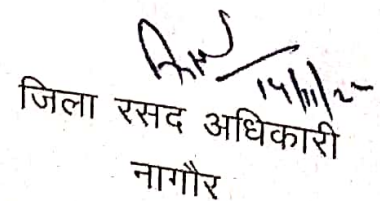 14/11/2
जिला रसद अधिकारी
नागौर